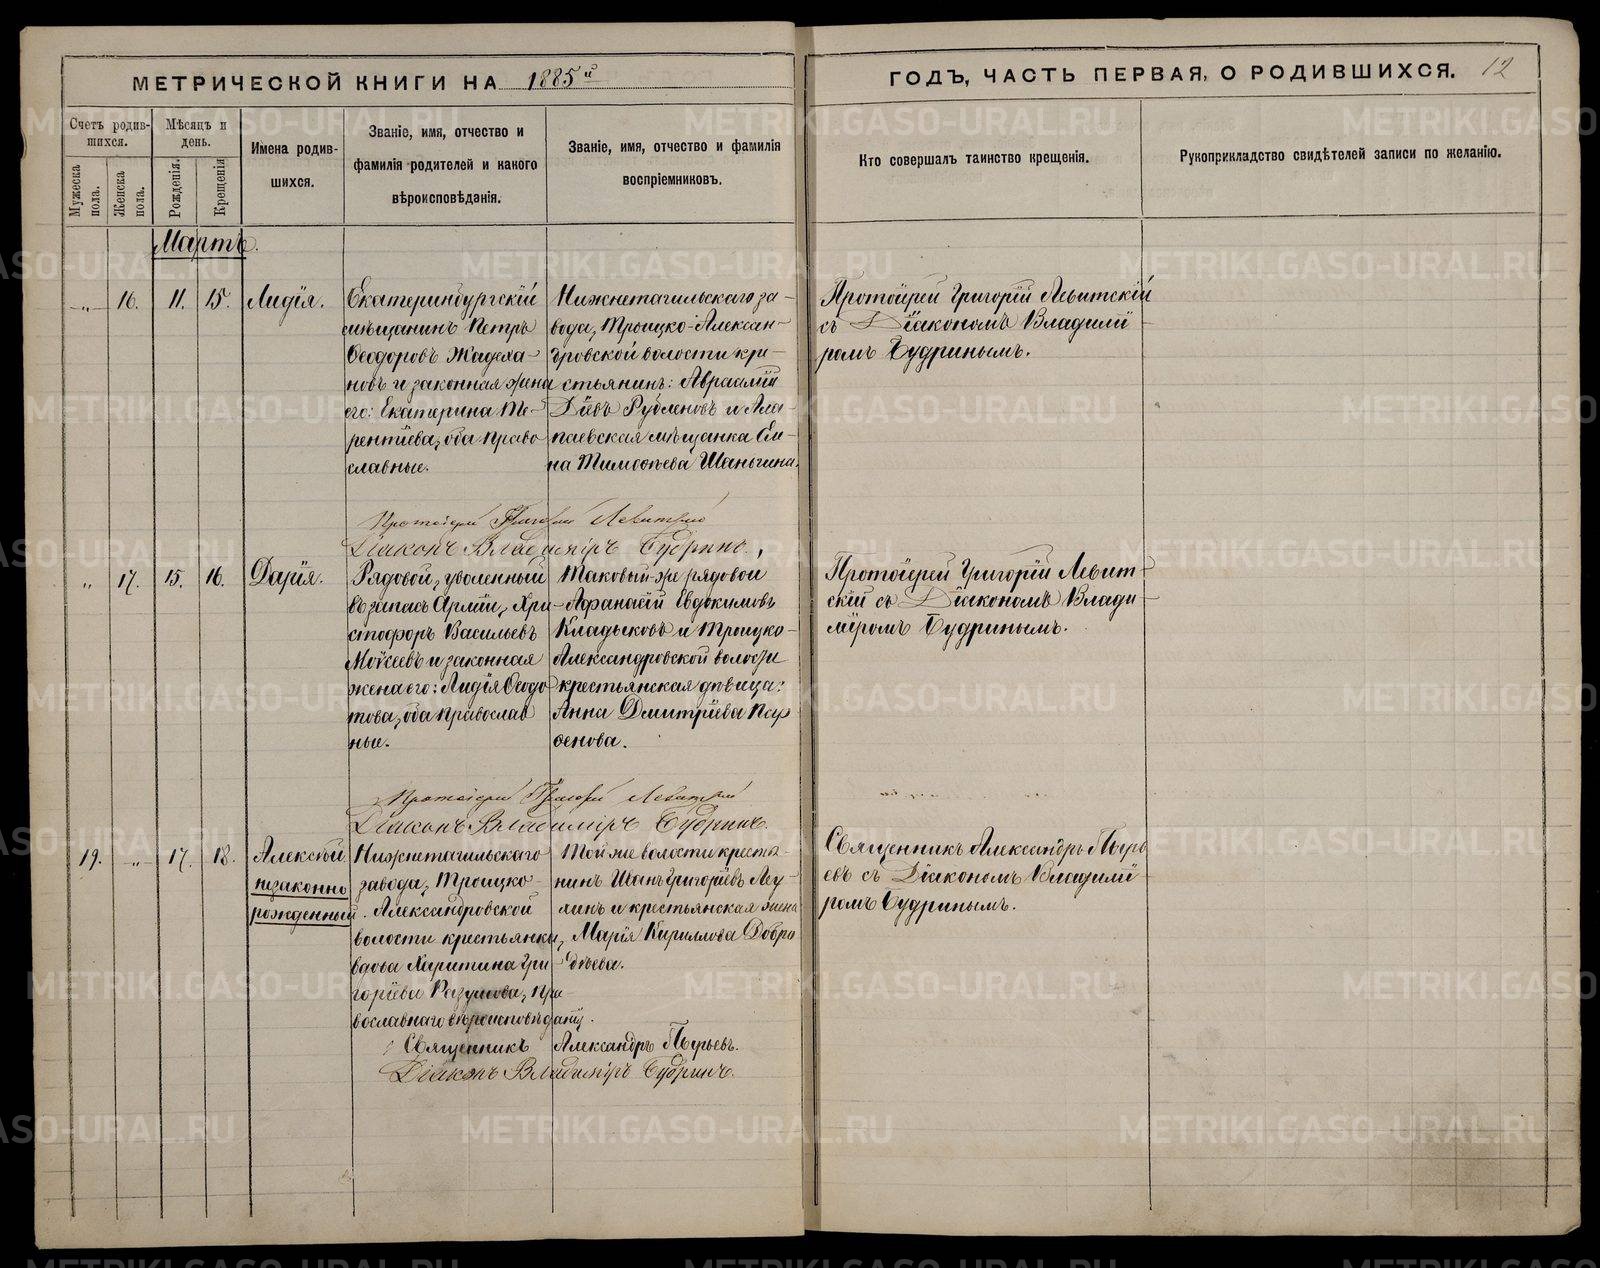 МЕТРИЧЕСКОЙ КНИГИ НА 1885й
ГОДЪ, ЧАСТЬ ПЕРВАЯ, О РОДИВШИХСЯ. 12
Счетъ родив-
шихся.
Мужеска пола.
Женска пола.
Мѣсяцъ и
день.
Рожденія.
Крещенія
Имена родив-
шихся.
Званіе, имя, отчество и
фамилія родителей и какого
вѣроисповѣданія.
Званіе, имя, отчество и фамилія
воспріемниковъ.
Кто совершалъ таинство крещенія.
Рукоприкладство свидѣтелей записи по желанію.
Мартъ.
-„- 16. 11. 15. Лидія.
Екатеринбургскій
мѣщанинъ Петръ
Ѳеодоровъ
новъ и законная жена
его: Екатерина Те-
рентіева, оба право
славные.
Нижнетагильскаго за-
вода, Троицко-Алексан-
дровской волости кре-
стьянинъ: Авраамій
Діевъ Рубленовъ и Ала-
паевская мѣщанка Еле-
на Тимоѳеева Шаньгина.
Протоіерей Григорій Левитскій
съ Діакономъ Владимі-
ромъ Будринымъ.
Протоіерей Григорій Левитскій
Діаконъ Владиміръ Будринъ.
„ 17. 15. 16. Дарія.
Рядовой, уволенный
въ запасъ Арміи, Хри-
стофоръ Васильевъ
Моисеевъ и законная
жена его: Лидія Ѳеодо
това, оба православ
ные.
Таковый-же рядовой
Аѳанасій Евдокимовъ
Кладыковъ и Троицко-
Александровской волости
крестьянская дѣвица:
Анна Дмитріева Пар
ѳенова.
Протоіерей Григорій Левит-
скій съ Діакономъ Влади-
міромъ Будринымъ.
Протоіерей Григорій Левитскій
Діаконъ Владиміръ Будринъ.
19. -„- 17. 18. Алексѣй
незаконно
рожденный
Нижнетагильскаго
завода, Троицко-
Александровской
волости крестьянка,
вдова Харитина Гри-
горіева Разумова, пра
вославнаго вѣроисповѣданія.
Той же волости крестья-
нинъ Иванъ Григоріевъ
и крестьянская жена
Марія Кириллова Добро
дѣева.
Священникъ Александръ Пырь
евъ съ Діакономъ Владимі-
ромъ Будринымъ.
Священникъ Александръ Пырьевъ.
Діаконъ Владиміръ Будринъ.
METRIKI.GASO-URAL.RU